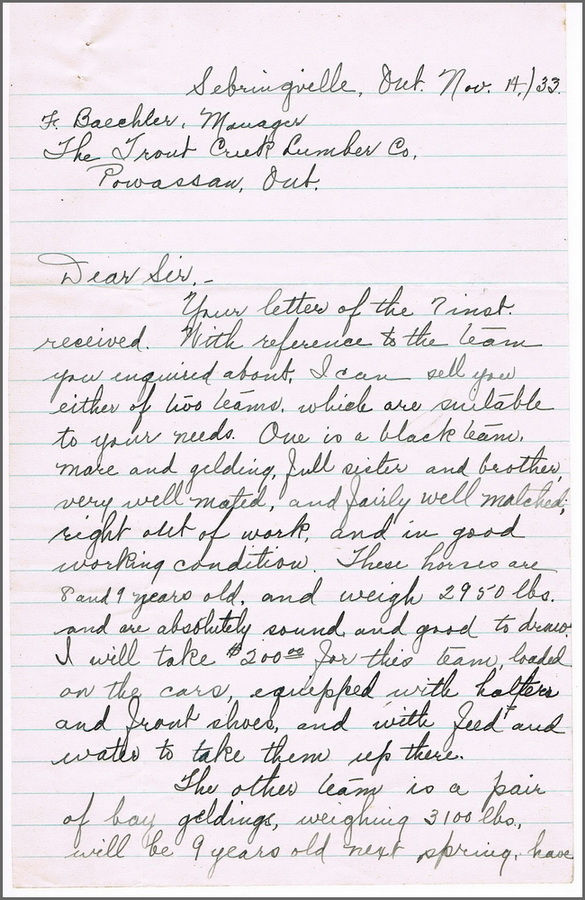 Sebringville, Ont. Nov. 14,/33.
F. Baechler, Manager
The Trout Creek Lumber Co.
Powassan, Ont.
Dear Sir,-
Your letter of the 7 inst.
received. With reference to the team
you enquired about, I can sell you
either of two teams, which are suitable
to your needs. One is a black team,
mare and gelding, full sister and brother,
very well mated, and fairly well matched,
right out of work, and in good
working condition. These horses are
8 and 9 years old, and weigh 2950 lbs.
and are absolutely sound and good to draw.
I will take $200.00 for this team, loaded
on the cars, equipped with halters
and front shoes, and with feed and
water to take them up there.
The other team is a pair
of bay geldings, weighing 3100 lbs.,
will be 9 years old next spring, have